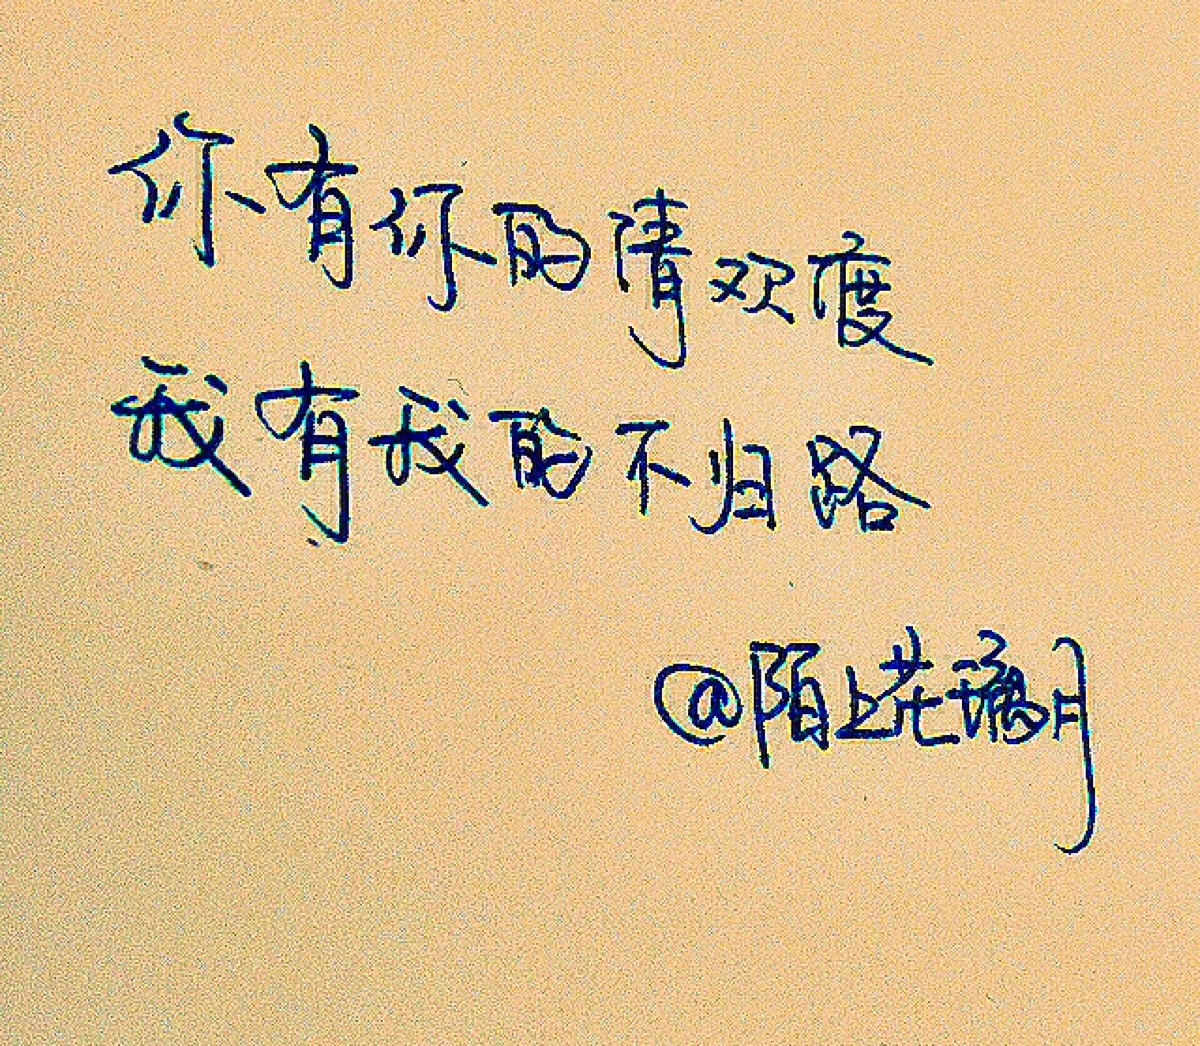 你有你的情欢度
我有我的不归路
@陌上花璃月